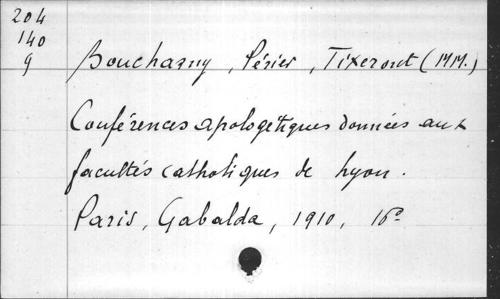 204
140
9
Boucharny, Périer, Tixeront (MM.)
Conférences apologétiques données aux
facultés catholiques de Lyon.
Paris, Gabalda, 1910, 16°